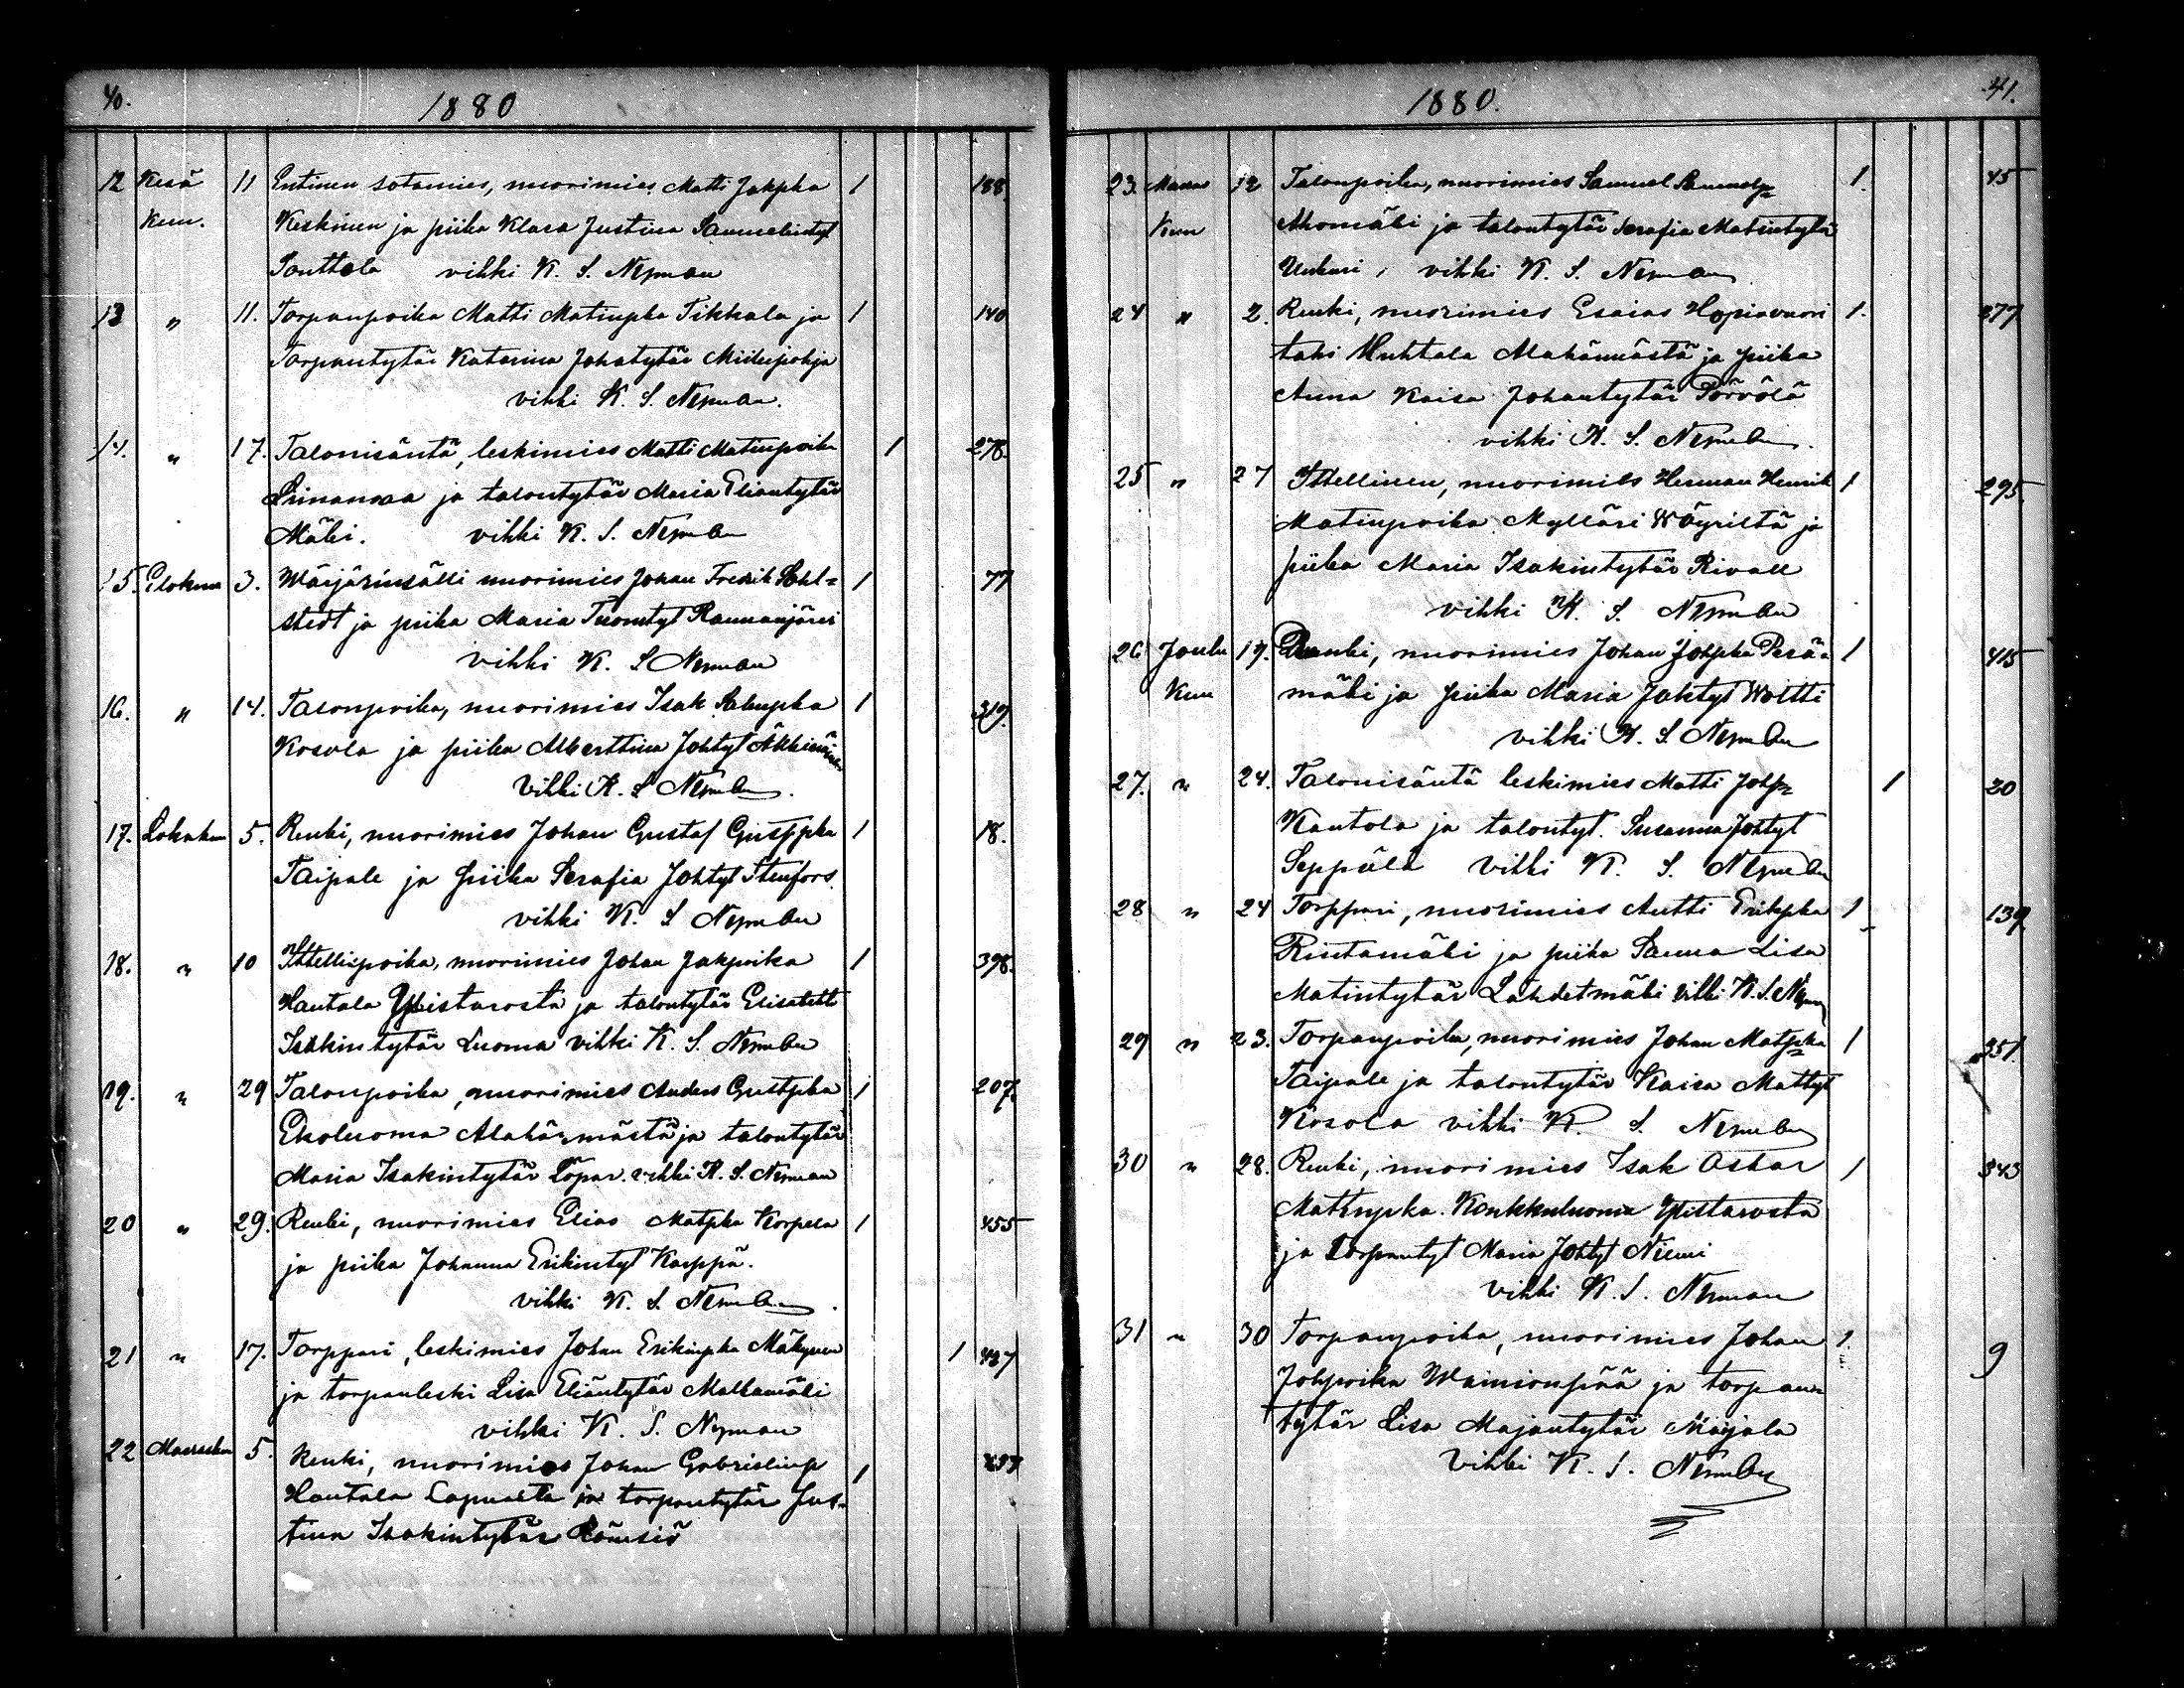 40.
1880
12 Kesä 11 Entinen sotamies, nuorimies Matti Jakpka 1 188
kuu. Keskinen ja piika Klara Justina Samuelintyt
Panttola vihki K. S. Nyman
13 " 11. Torpanpoika Matti Matinpka Tikkala ja 1 140
Torpantytär Katarina Johatytär
vihki K. S. Nyman.
14. " 17. Talonisäntä, leskimies Matti Matinpoika 1 278.
Liinamaa ja talontytär Maria Eliantytär
Mäki. vihki K. S. Nyman
15. Elokuu 3. Wärjärinsälli nuorimies Johan Fredrik
stedt ja piika Maria Tuomtyt Raumanjärvi 1 77
vihki K. S Nyman
16. " 14. Talonpoika, nuorimies Isak Salpka 1 319.
Kosola ja piika Alberttina Johtyt
vihki K. S Nyman.
17. Lokakuu 5. Renki, nuorimies Johan Gustaf Gustfpka 1 18.
Taipale ja piika Serafia Johtyt Stenfors.
vihki K. S Nyman
18. " 10 Ittellispoika, nuorimies Johan Jakpoika 1 398.
Hautala Ylistarosta ja talontytär Elisabetti
Isakintytär Luoma vihki K. S. Nyman
19. " 29 Talonpoika, nuorimies Anders Gustpka 1 207.
Ekoluoma Alahärmästä ja talontytär
Maria Isakintytär Löpar. vihki K. S. Nyman
20 " 29. Renki, nuorimies Elias Matpka Korpela 1 455
ja piika Johanna Erikintyt Karppä.
vihki K. S. Nyman.
21 " 17. Torppari, leskimies Johan Erikinpka Mäkynen 1
ja torpanleski Lisa Eliäntytär Mallamäki
vihki K. S. Nyman
22 Marraskuu 5. Renki, nuorimies Johan Gabrielinp 1
Hautala Lapualta ja torpantytär Jus-
tiina Isakintytär Rämsiö
41.
1880.
23. Marras 12 Talonpoika, nuorimies Samuel Samuelp= 1. 45
kuu Ahomäki ja talontytär Serafia Matintytär
Unkuri, vihki K. S. Nyman
24 " 2. Renki, nuorimies Esaias Hopiavuori 1. 277
tahi Huhtala Alahärmästä ja piika
Anna Kaisa Johantytär Pörvölä
vihki K. S. Nyman.
25 " 27 Ittellinen, nuorimies Herman Henrik 1 295
Matinpoika Mylläri Wöyriltä ja
piika Maria Isakintytär Rivall
vihki K. S. Nyman
26 Joulu 17. Renki, nuorimies Johan Johpka Perä= 1 415
kuu mäki ja piika Maria Jaktyt Woltti
vihki K. S. Nyman
27. " 24. Talonisäntä leskimies Matti Johp= 1 30
Kantola ja talontyt. Susanna Johtyt
Seppälä vihki K. S. Nyman
28 " 24 Torppari, nuorimies Antti Erikpka 1 139
Rintamäki ja piika Sanna Lisa
Matintytär Lahdetmäki vihki K. S. Nyman
29 " 23. Torpanpoika, nuorimies Johan Matpka 1 351
Taipale ja talontytär Kaisa Mattyt
Kosola vihki K. S. Nyman
30 " 28. Renki, nuorimies Isak Oskar 1 343
Matinpka. Konkkuluoma Ylistarosta
ja Torpantyt Maria Johtyt Niemi
vihki K. S. Nyman
31 " 30 Torpanpoika, nuorimies Johan 1. 9
Johpoika Wainionpää ja torpan=
tytär Lisa Majantytär Märjala
vihki K. S. Nyman